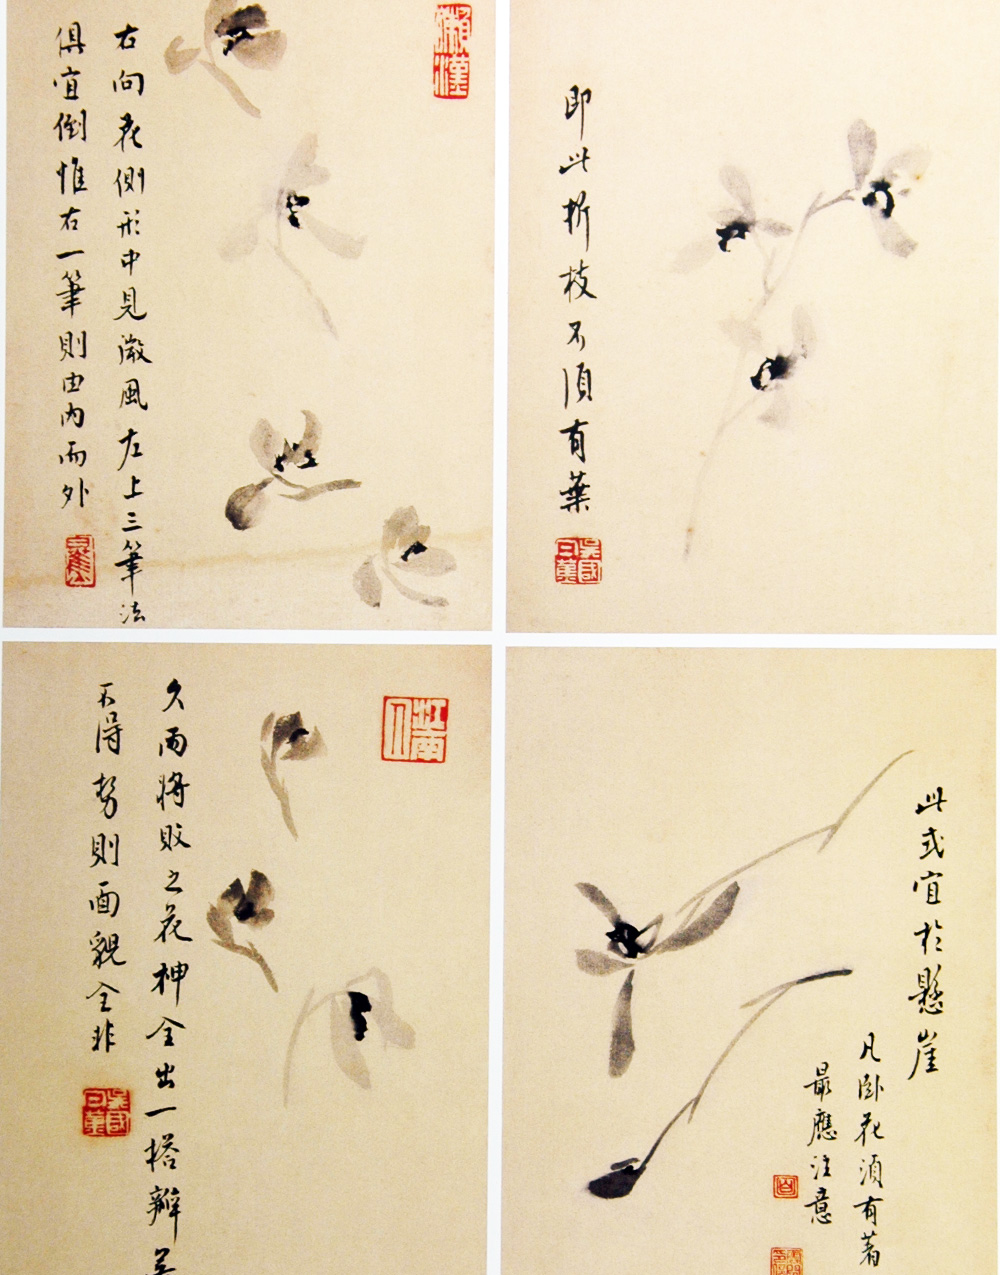 右向花側形中見微風左上三筆法
俱宜倒惟右一筆則由內而外
即此折枝不須有葉
久雨將敗之花神全出一搭辦
不得勢則面貌全非
此式宜於懸崖
凡臥花須有著
最應注意